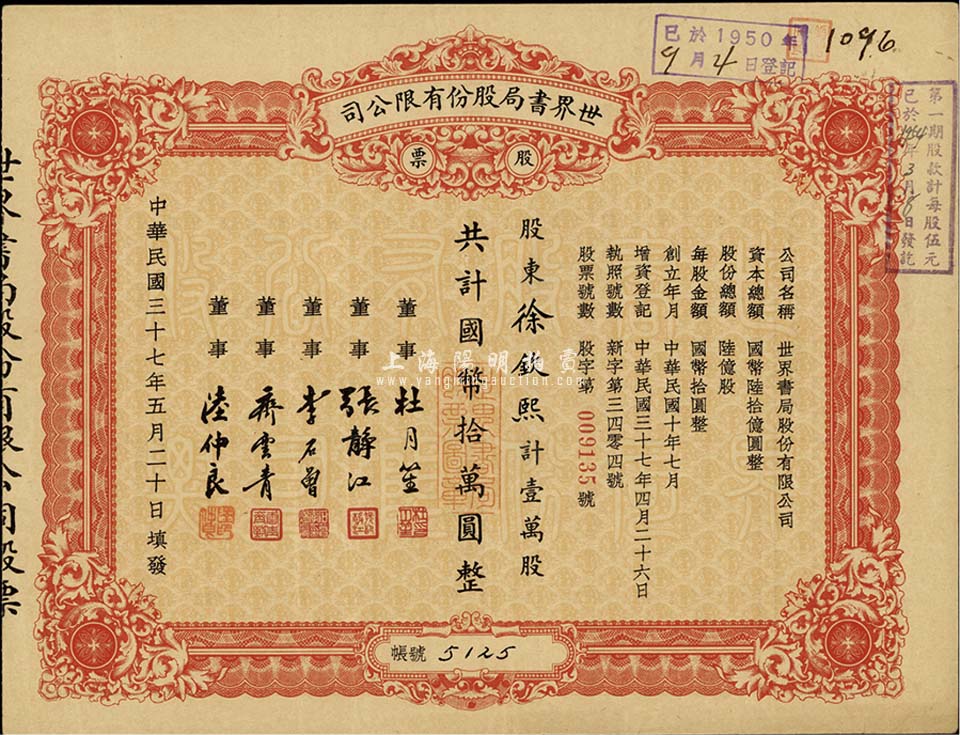 世界書局股份有限公司
股票
公司名稱 世界書局股份有限公司
資本總額 國幣陸拾億圓整
股份總額 陸億股
每股金額 國幣拾圓整
創立年月 中華民國十年七月
增資登記 中華民國三十七年四月二十六日
執照號數 新字第三四零四號
股票號數 股字第 009135 號
股東徐欽熙計壹萬股
共計國幣拾萬圓整
董事 杜月笙
董事 張靜江
董事 李石曾
董事 齊雲青
董事 陸仲良
中華民國三十七年五月二十日填發
帳號 5125
已於1950年
9月4日登記
1096
第一期股款計每股伍元
已於1954年3月8日發訖
世界書局股份有限公司股票
上海陽明拍賣
www.yangmingauction.com